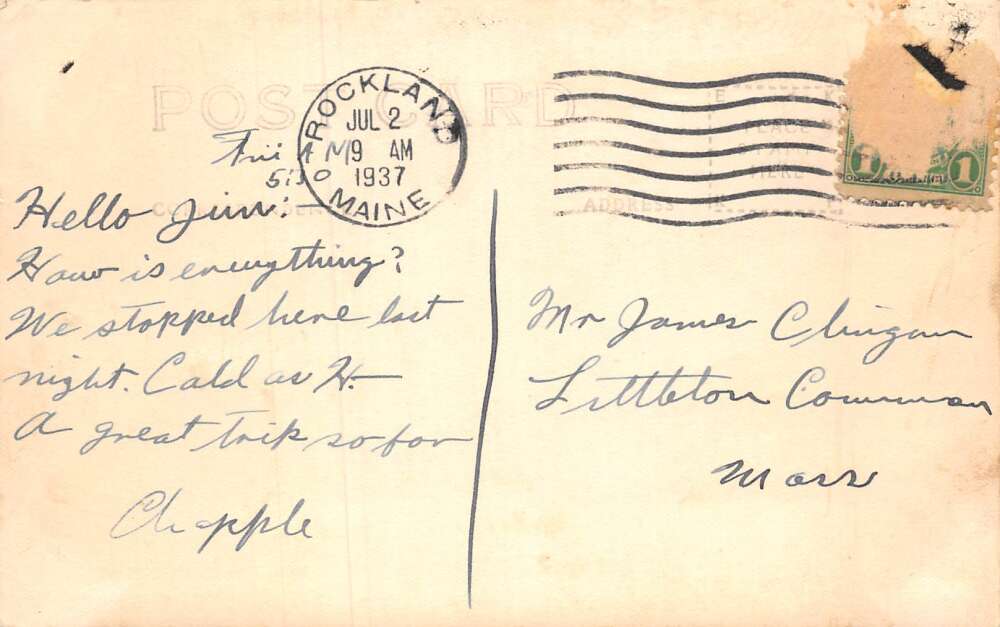 POST CARD
ROCKLAND
JUL 2
9 AM
1937
MAINE
Fri AM
5:30
Hello Jim:—
How is everything?
We stopped here last
night. Cold as H—
A great trip so far
Chapple
PLACE
HERE
ADDRESS
1 1
Mr James Clingan
Littleton Common
Mass